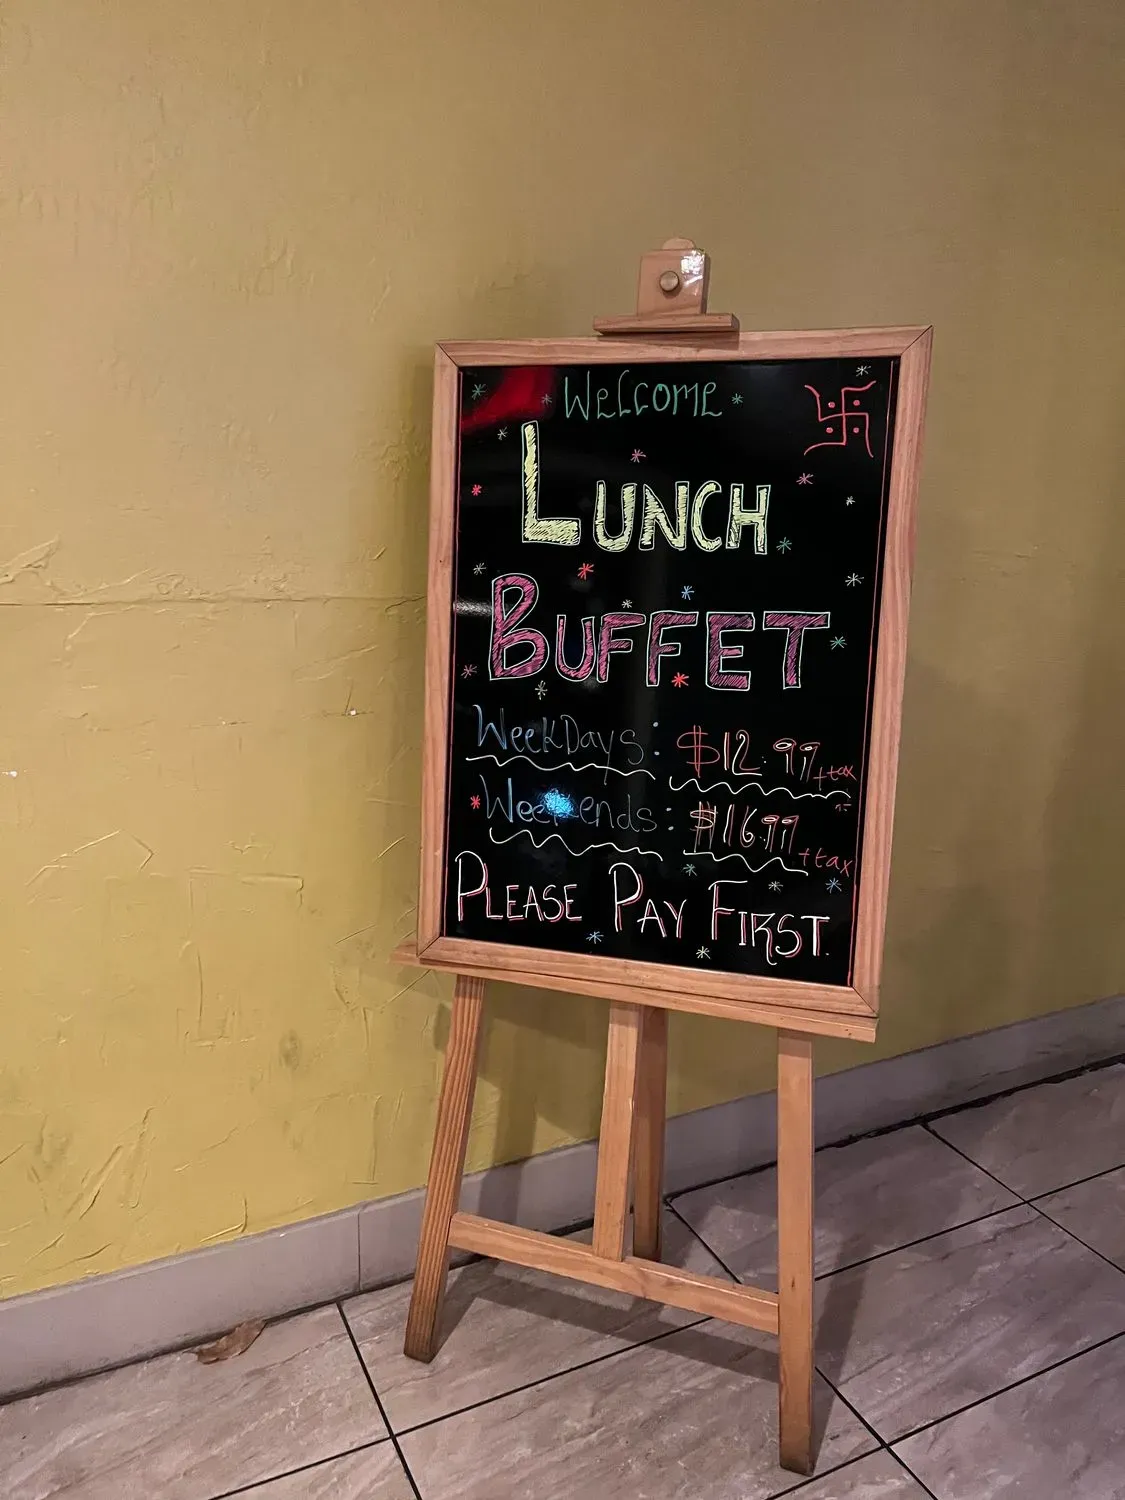 Welcome
LUNCH
BUFFET
WeekDays: $12.99 +tax
Weekends: $16.99 +tax
PLEASE PAY FIRST.